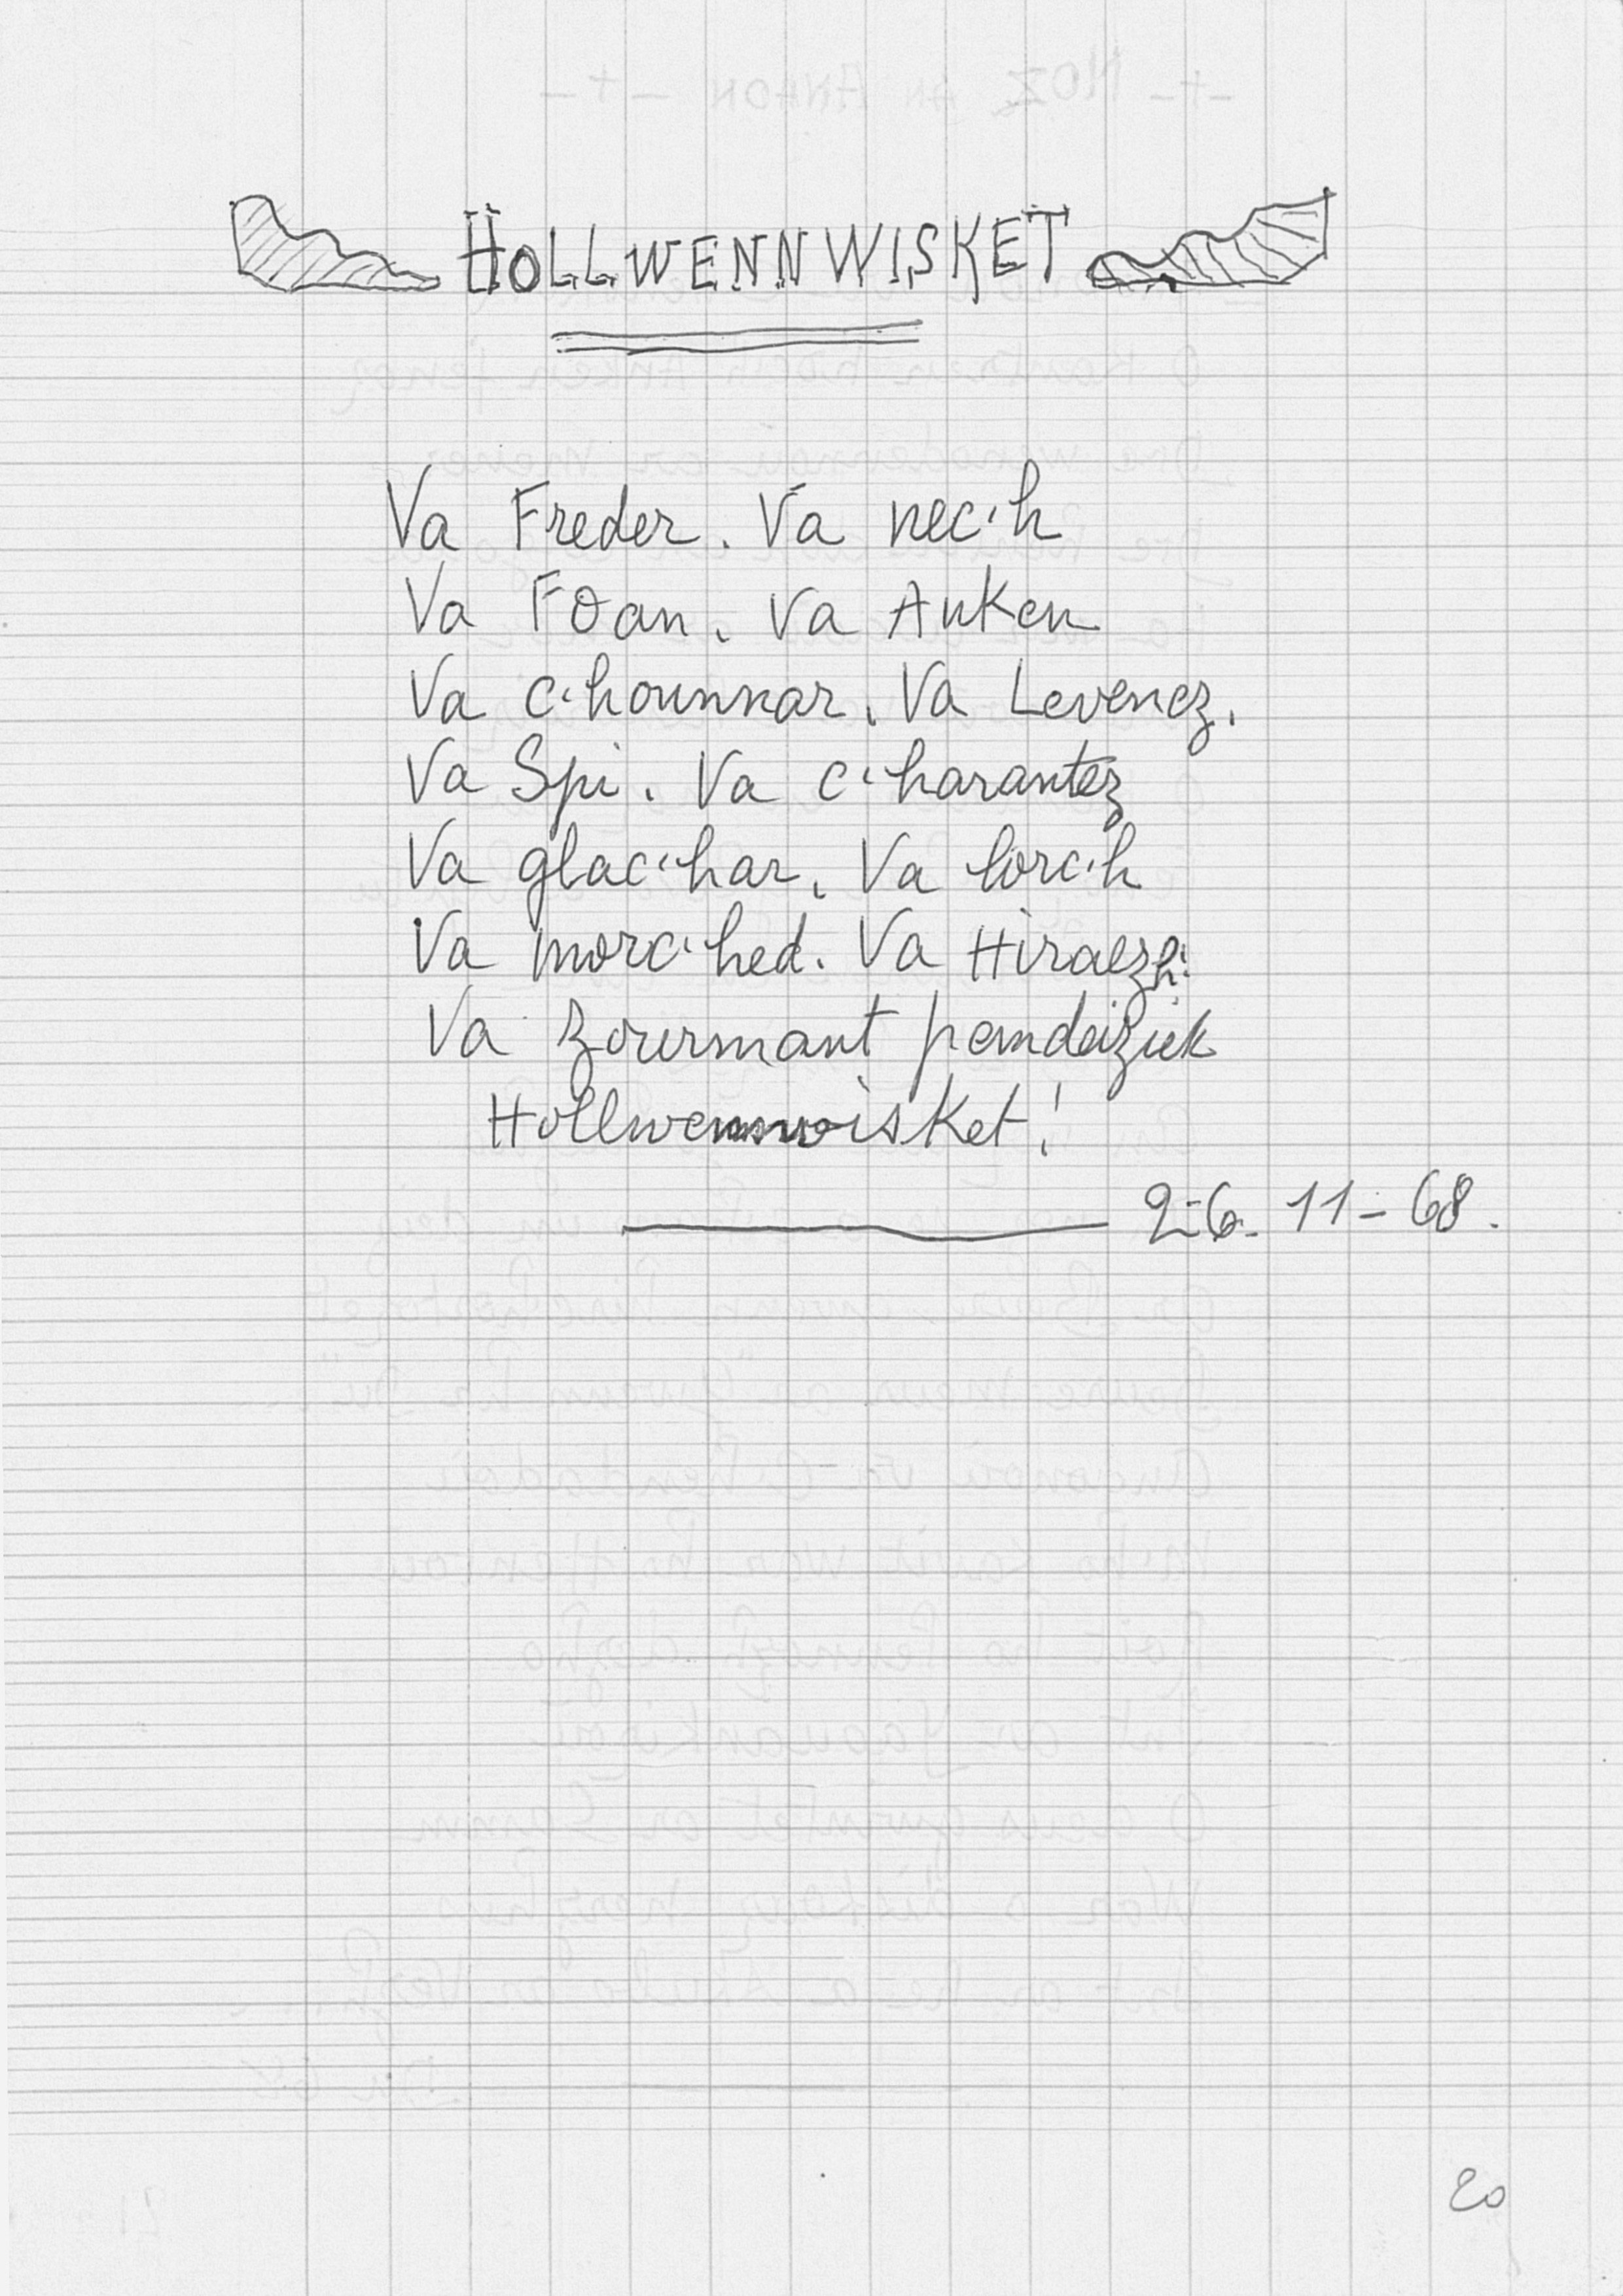 HOLLWENNWISKET
Va Freder. Va nec'h
Va Foan. Va Anken
Va c'hounnar. Va Levenez.
Va Spi. Va c'harantez
Va glac'har. Va lorc'h
Va morc'hed. Va Hiraezh.
Va pemdeiziek
Hollwennwisket!
26. 11-68.
20